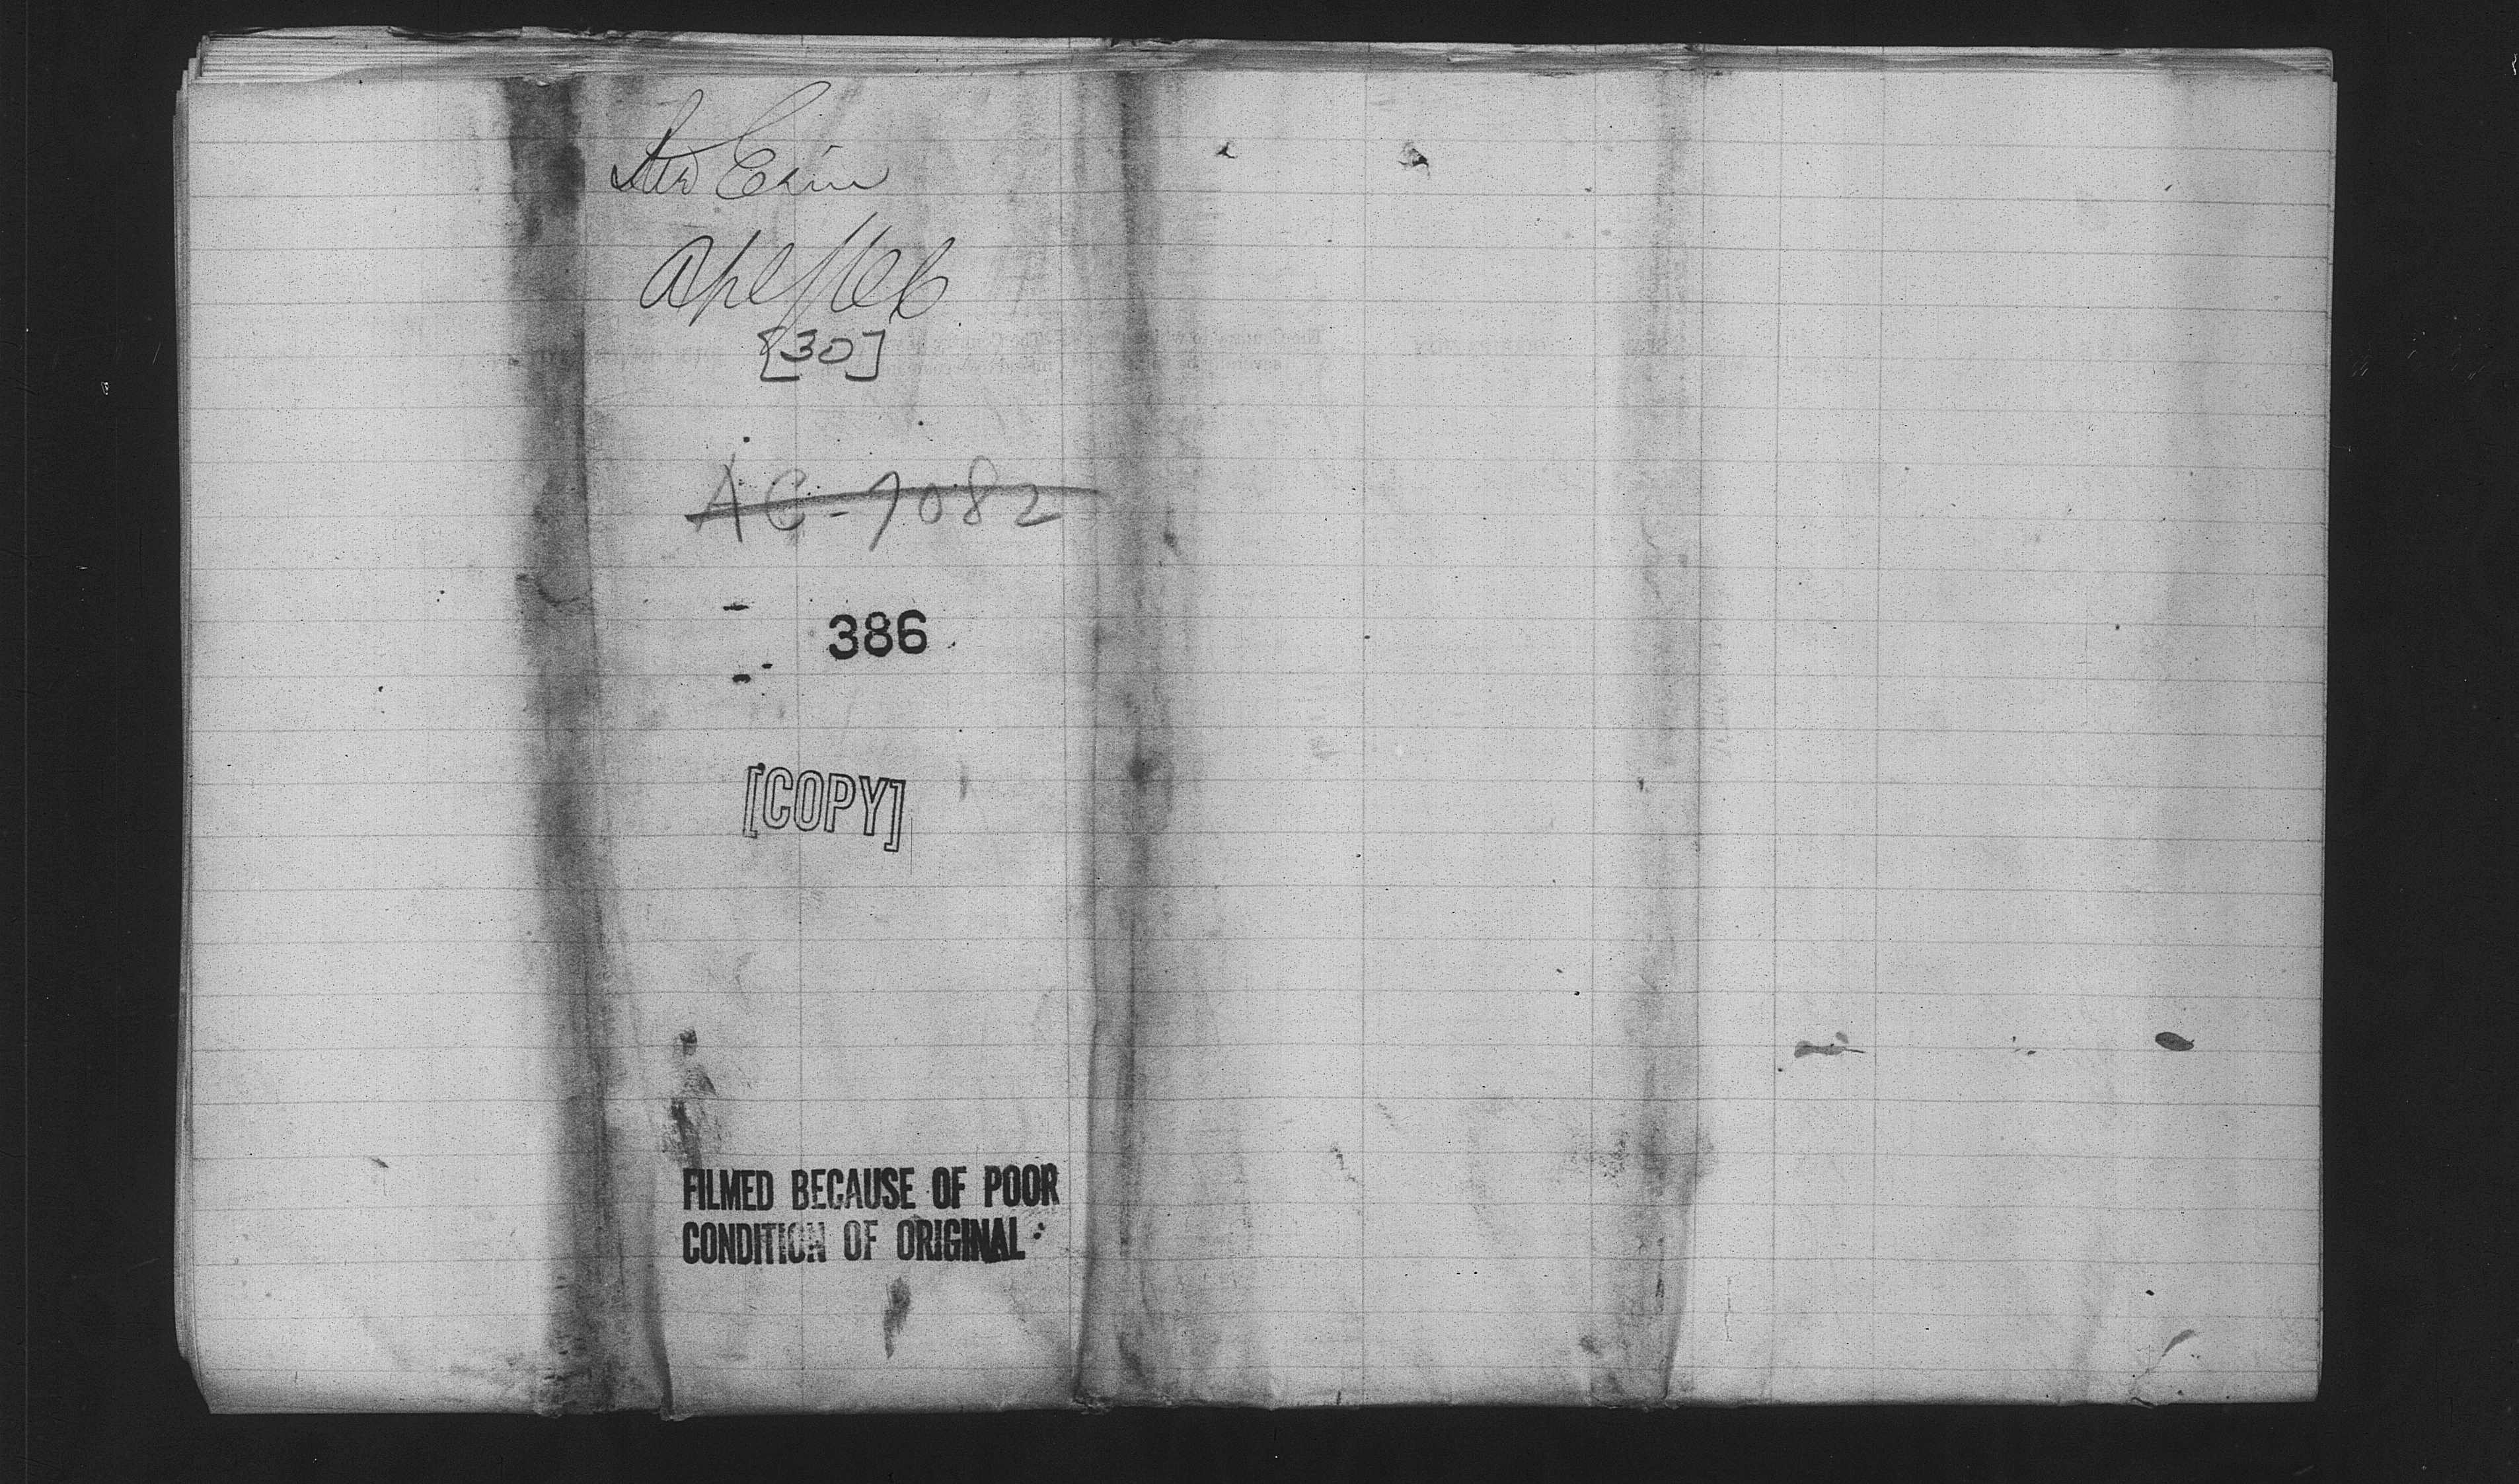 Str Erin
Apl 1/66
[30]
AC-7082
386
[COPY]
FILMED BECAUSE OF POOR
CONDITION OF ORIGINAL